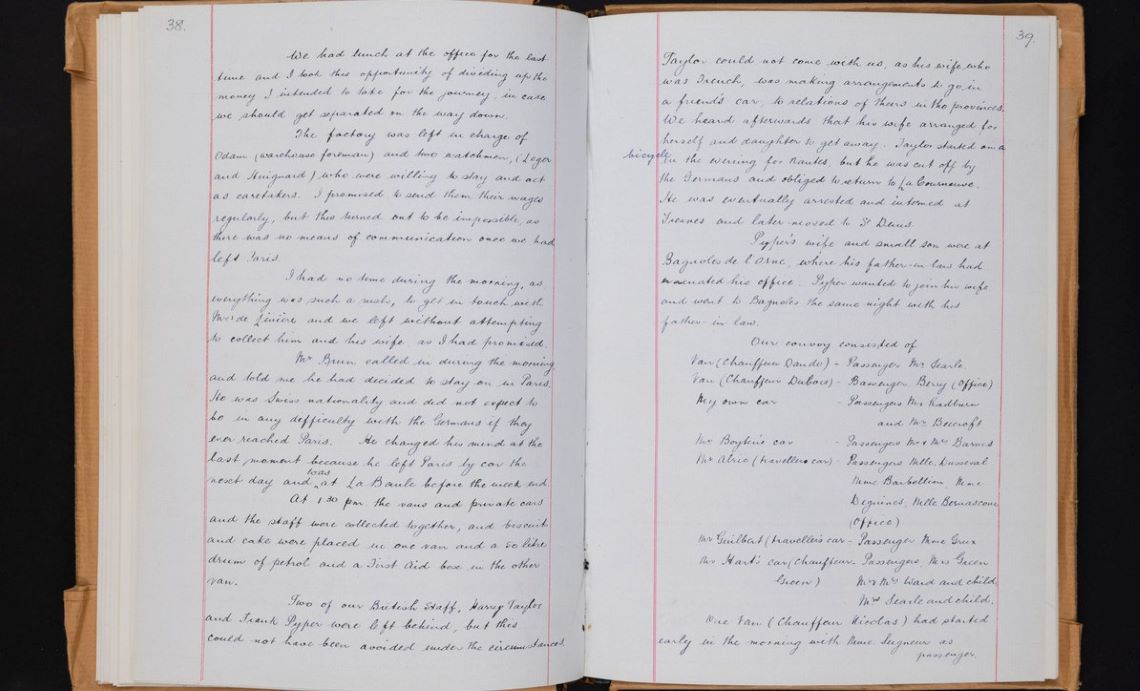 38.
We had lunch at the office for the last
time and I took this opportunity of dividing up the
money I intended to take for the journey, in case
we should get separated on the way down.
The factory was left in charge of
Odam (warehouse foreman) and two watchmen, (Leger
and Huignard) who were willing to stay and act
as caretakers. I promised to send them their wages
regularly, but this turned out to be impossible, as
there was no means of communication once we had
left Paris.
I had no time during the morning, as
everything was such a rush, to get in touch with
Mr de Linière and we left without attempting
to collect him and his wife, as I had promised.
Mr Brun called in during the morning
and told me he had decided to stay on in Paris.
He was Swiss nationality and did not expect to
be in any difficulty with the Germans if they
ever reached Paris. He changed his mind at the
last moment because he left Paris by car the
next day and was at La Baule before the week end.
At 1.30 pm the vans and private cars
and the staff were collected together, and biscuit
and cake were placed in one van and a 50 litre
drum of petrol and a First Aid box in the other
van.
Two of our British Staff, Harry Taylor
and Frank Pyper were left behind, but this
could not have been avoided under the circumstances.
39.
Taylor could not come with us, as his wife, who
was French, was making arrangements to go in
a friend's car, to relations of theirs in the provinces.
We heard afterwards that his wife arranged for
herself and daughter to get away. Taylor started on a
bicycle in the evening for Nantes, but he was cut off by
the Germans and obliged to return to La Courneuve.
He was eventually arrested and interned at
Fresnes and later moved to St Denis
Pyper's wife and small son were at
Bagnoles de l'Orne, where his father-in-law had
his office. Pyper wanted to join his wife
and went to Bagnoles the same night with his
father-in law.
Our convoy consisted of
Van (Chauffeur Dando) - Passenger Mr Searle
Van (Chauffeur Dubois) - Passenger Bery (Office)
My own car - Passengers Mrs Radburn
and Mr Beecroft
Mr Boyton's car - Passengers Mr & Mrs Barnes
Mr Alric (travellers car) - Passengers Mlle. Dusseval
Mme Barbellion, Mme
Deguines, Mlle Bernascone
(Office)
Mr Guilbert (travellers car - Passenger Mme Grux
Mr Hart's car (Chauffeur - Passengers, Mrs Green
Green) Mr & Mrs Ward and child
Mrs Searle and child.
One Van (Chauffeur Nicolas) had started
early in the morning with Mme. Seigneur as
passenger.